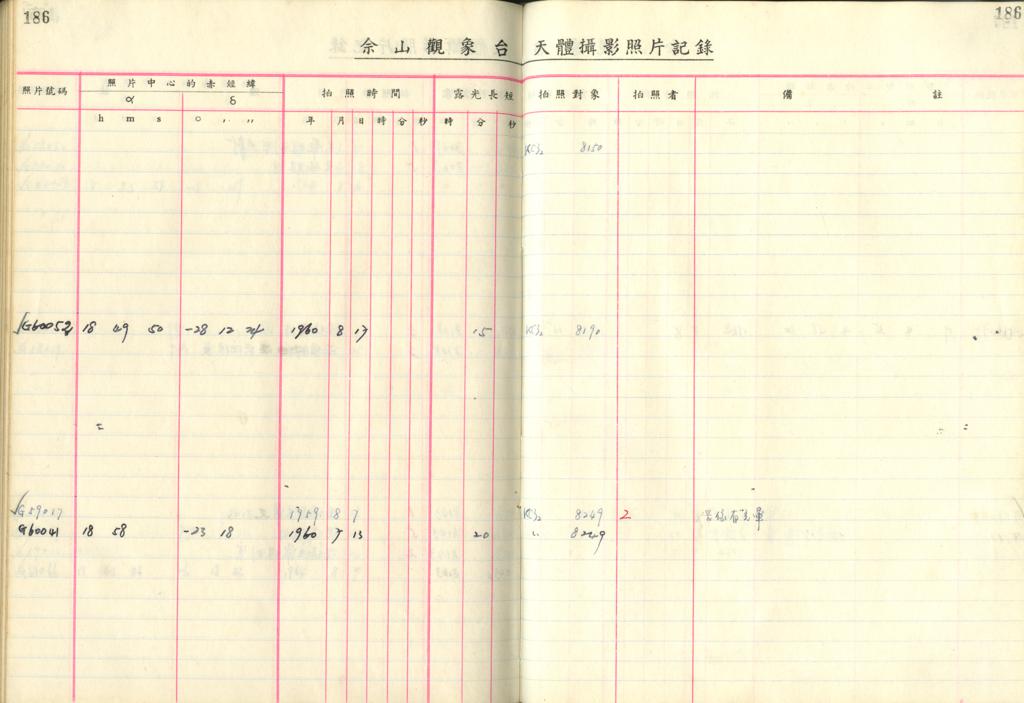 186
186
佘山觀象台 天體攝影照片記錄
照片號碼 照片中心的赤經緯 拍照時間 露光長短 拍照對象 拍照者 備註
α δ
h m s ○ , ,, 年 月 日 時 分 秒 時 分 秒
8150
√G60052 18 49 50 -28 12 24 1960 8 17 15 8190
=
√G59017 1959 8 7 8249 2
G60041 18 58 -23 18 1960 7 13 20 " 8249